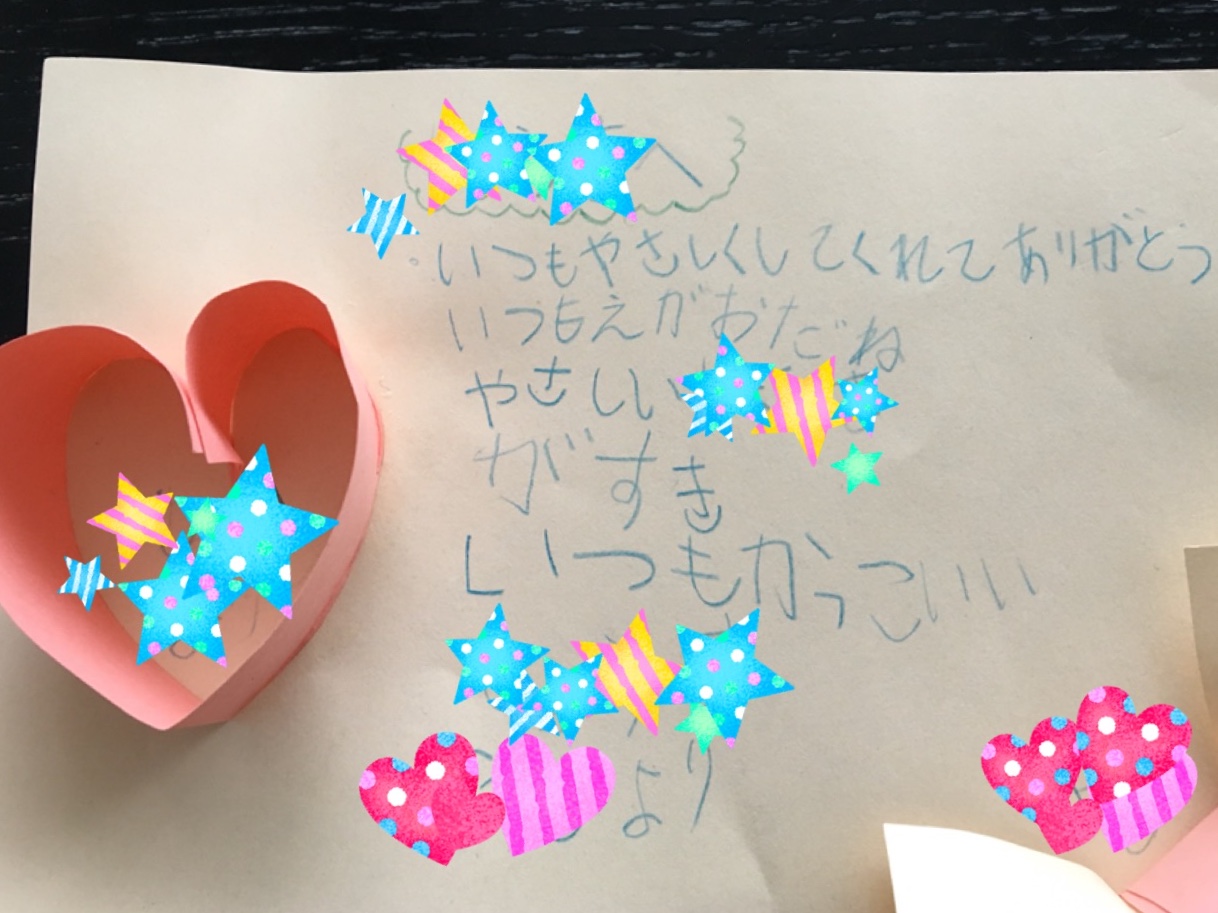 いつもやさしくしてくれてありがとう
いつもえがおだね
やさしい
がすき
いつもかっこいい
より